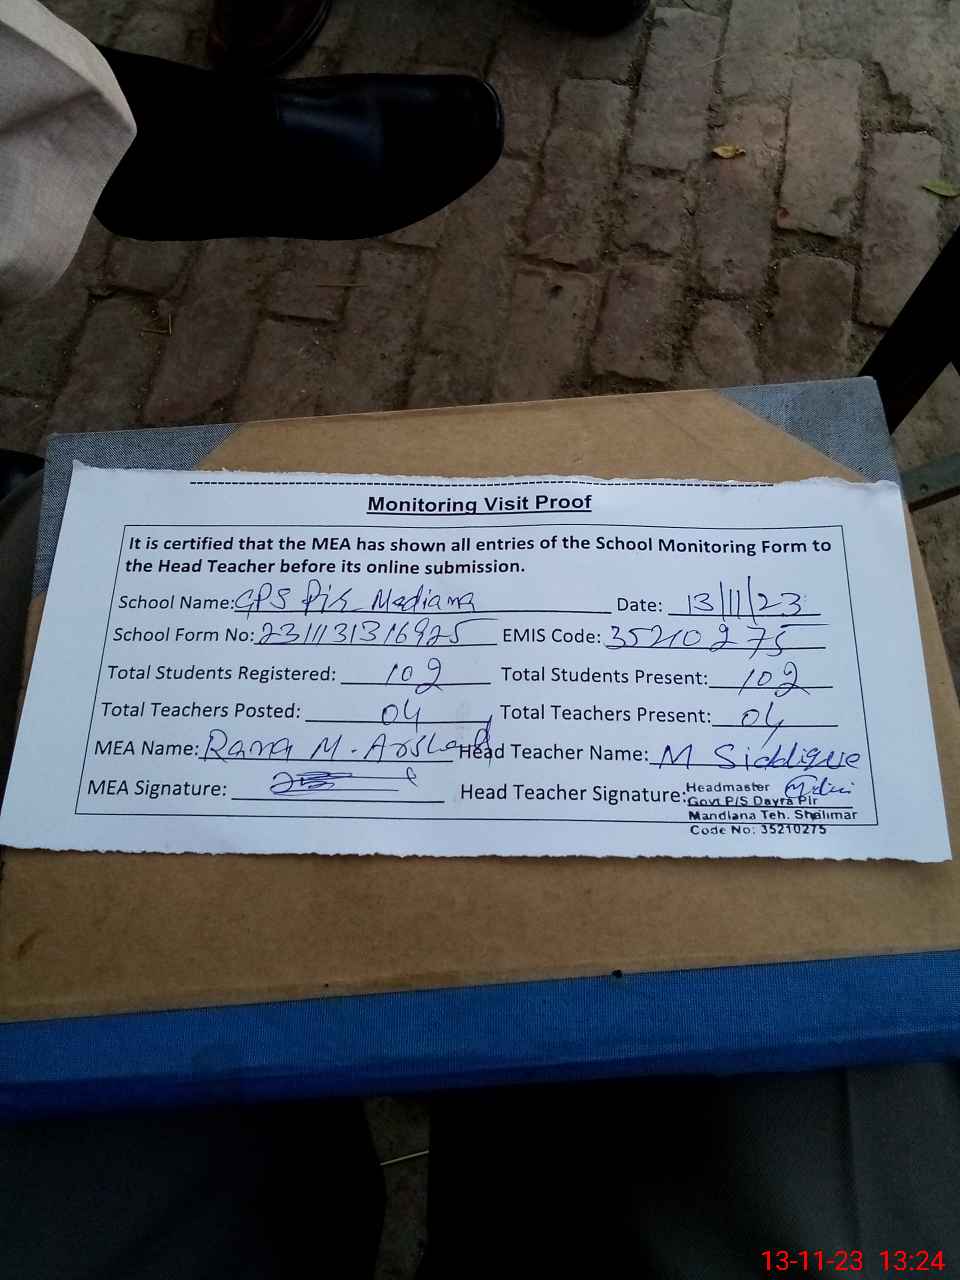 Monitoring Visit Proof
It is certified that the MEA has shown all entries of the School Monitoring Form to
the Head Teacher before its online submission.
School Name: GPS Mediana Date: 13/11/23
School Form No: 2311131316925 EMIS Code: 35210275
Total Students Registered: 102 Total Students Present: 102
Total Teachers Posted: 04 Total Teachers Present: 04
MEA Name: Rana M. Arshad Head Teacher Name: M Siddique
MEA Signature: Head Teacher Signature:
Headmaster
Govt P/S Dayra Pir
Mandiana Teh. Shalimar
Code No: 35210275
13-11-23 13:24